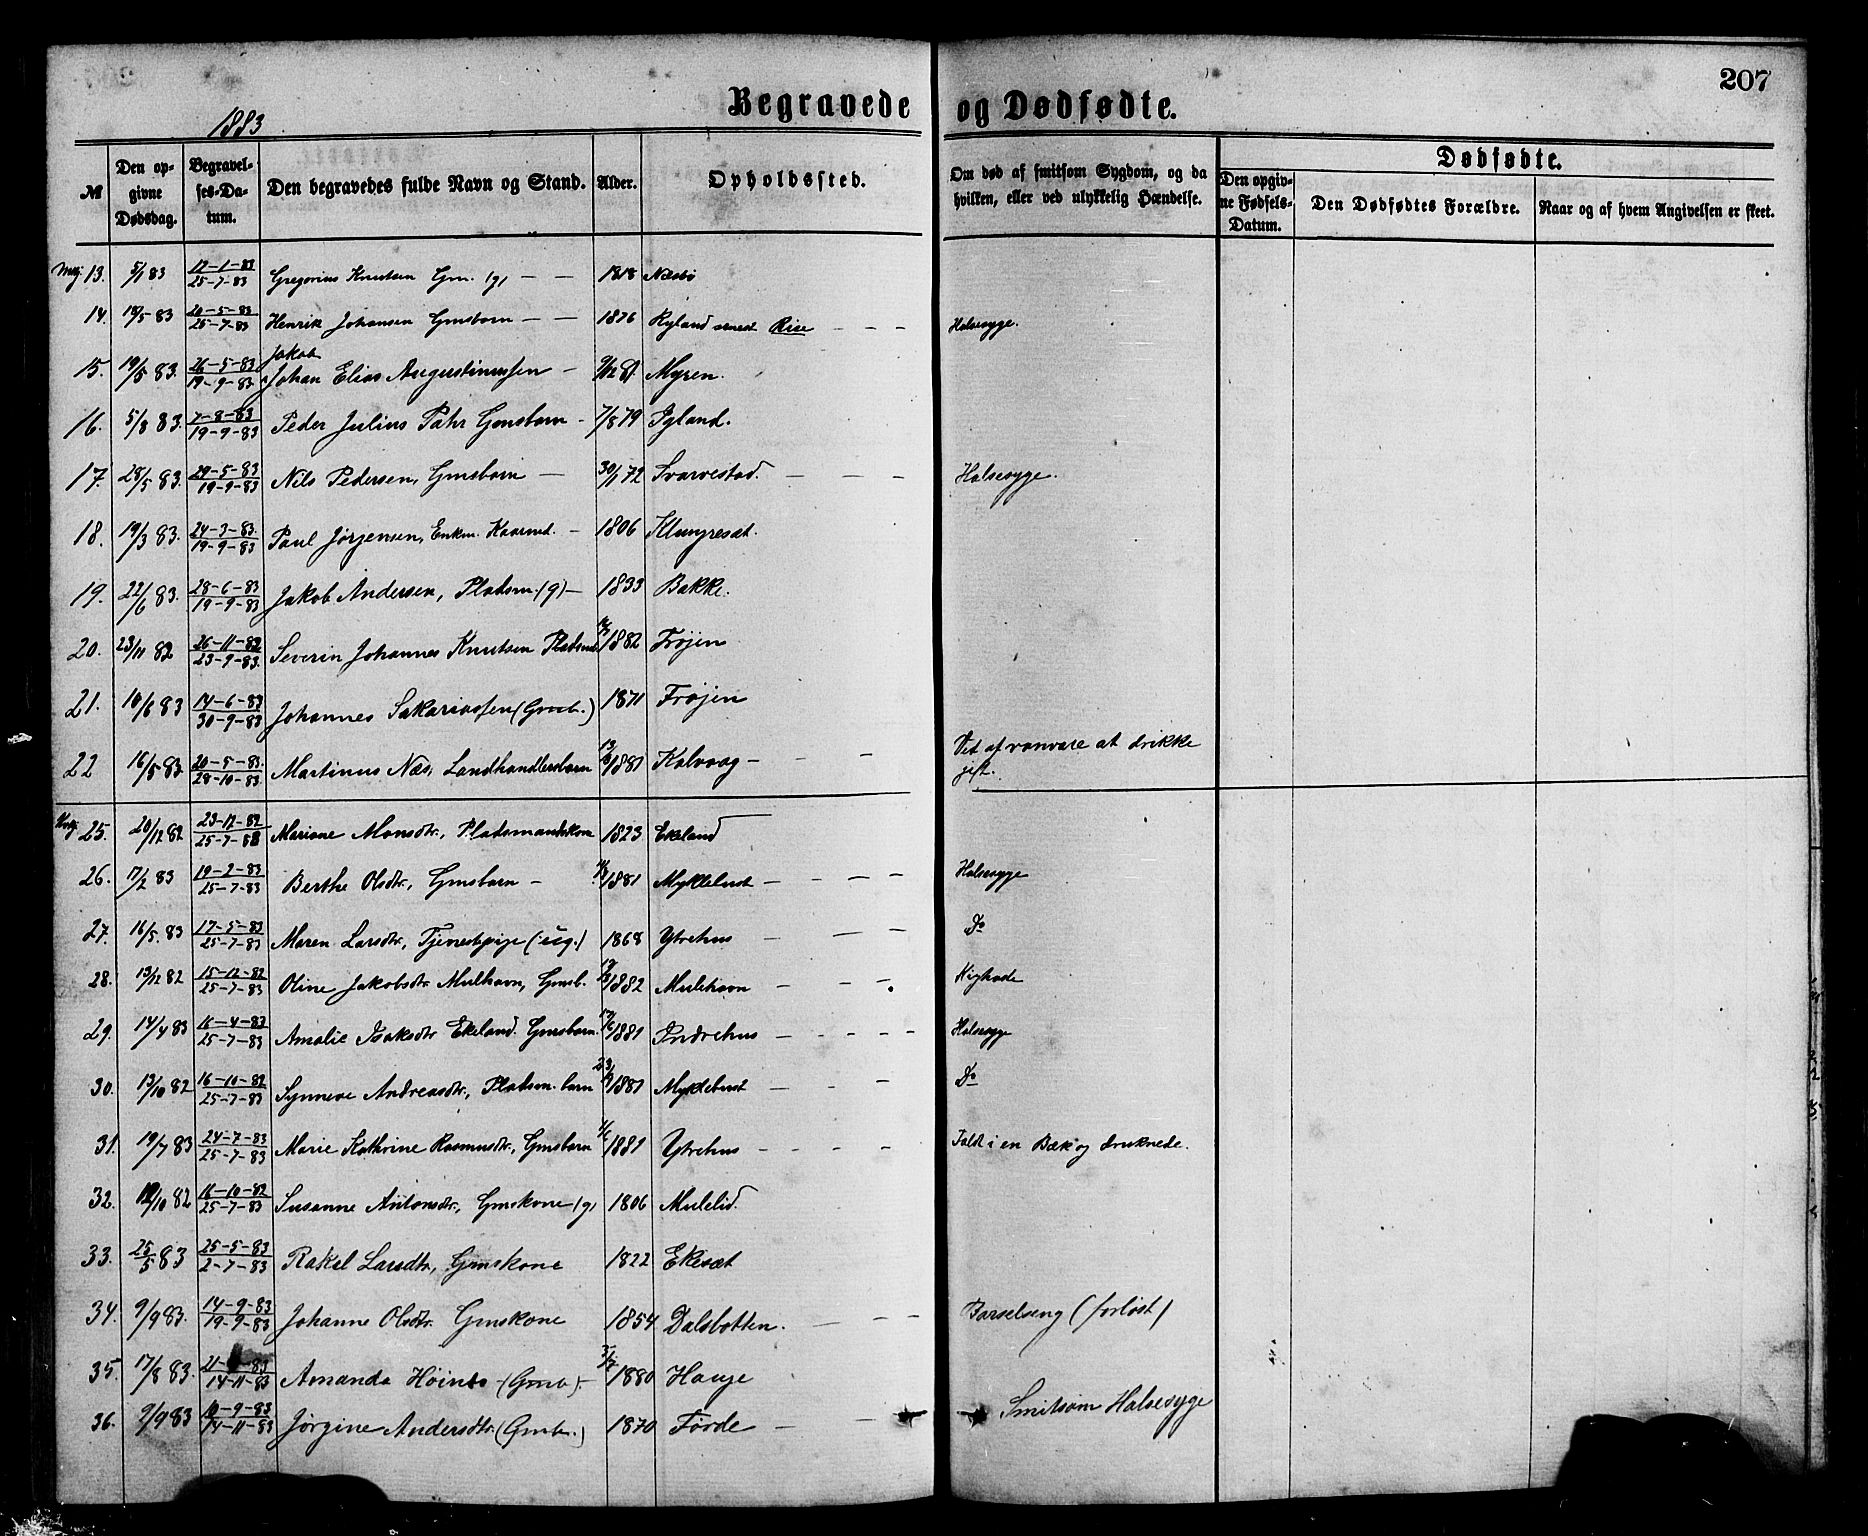 207
1883
Begravede og Dødfødte.
№ | Den opgivne Dødsdag. | Begravelses-Datum. | Den begravedes fulde Navn og Stand. | Alder. | Opholdssted. | Om død af smitsom Sygdom, og da hvilken, eller ved ulykkelig Hændelse. | Dødfødte. | Den opgivne Fødsels-Datum. | Den Dødfødtes Forældre. | Naar og af hvem Angivelsen er skeet.
13. 5/1 83 12-1-83 25-7-83 Gregorius Knutsen Gm. (g) — — 1818 Næsbø
14. 18/5 83 20-5-83 25-7-83 Henrik Johansen Gmsbarn — — 1876 Ryland Rise — — — Halsesyge.
15. 19/5 83. 26-5-83 19-9-83 Jakob Johan Elias Augustinussen — Myren.
16. 5/8 83. 7-8-83 19-9-83 Peder Julius Gmsbarn - 7/8 79 Iyland.
17. 28/5 83. 29-5-83 19-9-83 Nils Pedersen, Gmsbarn — 30/1 72 Svarvestad. — — — Halsesyge.
18. 19/3 83. 24-3-83. 19-9-83 Paul Jørgensen, Enkm. — 1806 Klungresæt.
19. 22/6 83. 28-6-83 19-9-83 Jakob Andersen, Pladsm. (g) — 1833 Bakke.
20. 23/11 82 26-11-82 23-9-83. Severin Johannes Knutsen 1882 Frøjen
21. 10/6 83 14-6-83 30-9-83 Johannes Sakariassen (Gmb.) 1871 Frøjen
22 16/5 83. 20-5-83. 28-10-83 Martinus Næs, Landhandlersbarn 1881 Kalvaag — — — Ved af vanvare at drikke
gift.
25. 20/12 82 23-12-82 Mariane Monsdtr., Pladsmandskone 1823 Ekeland
26. 17/2 83 19-2-83 25-7-83 Berthe Olsdtr., Gmsbarn — 1881 Myklebust — — — — Halsesyge
27. 16/5. 83 17-5-83 25-7-83 Maren Larsdtr., Tjenestpige (ug.) 1868 Ytrehus — — — Do
28. 13/12 82 15-12-82 25-7-83 Oline Jakobsdtr. Mulhavn, Gmsb. 1882 Mulehavn — — — Kighoste
29. 14/4 83 16-4-83 25-7-83 Amalie Isaksdtr. Ekeland. Gmsbarn. 1881 Indrehus — — — — — Halsesyge
30. 13/10 82 16-10-82 25-7-83 Synneve Andreasdtr., Pladsm. barn 1881 Myklebust — — — Do
31. 19/7 83 24-7-83 25-7-83 Marie Kathrine Rasmusdtr., Gmsbarn 1881 Ytrehus — — — — Faldt i en Bæk og druknede.
32. 16-10-82 25-7-83 Susanne Antonsdtr., Gmskone (g) 1806 Mulelid.
33. 25/5 83 25-5-83 2-7-83 Rakel Larsdtr., Gmskone 1822 Ekesæt
34. 9/9 83. 14-9-83 19-9-83 Johanne Olsdtr. Gmskone 1854 Dalsbotten. — — — Barselseng (forløst)
35. 17/8 83. 14-11-83 Amanda (Gmb.) — 1880 Hauge
36. 2/9 83 10-9-83 14-11-83 Jørgine Andersdtr. (Gmb.) 1870 Førde — — Smitsom Halsesyge